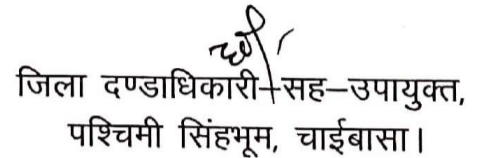 जिला दण्डाधिकारी–सह–उपायुक्त,
पश्चिमी सिंहभूम, चाईबासा।